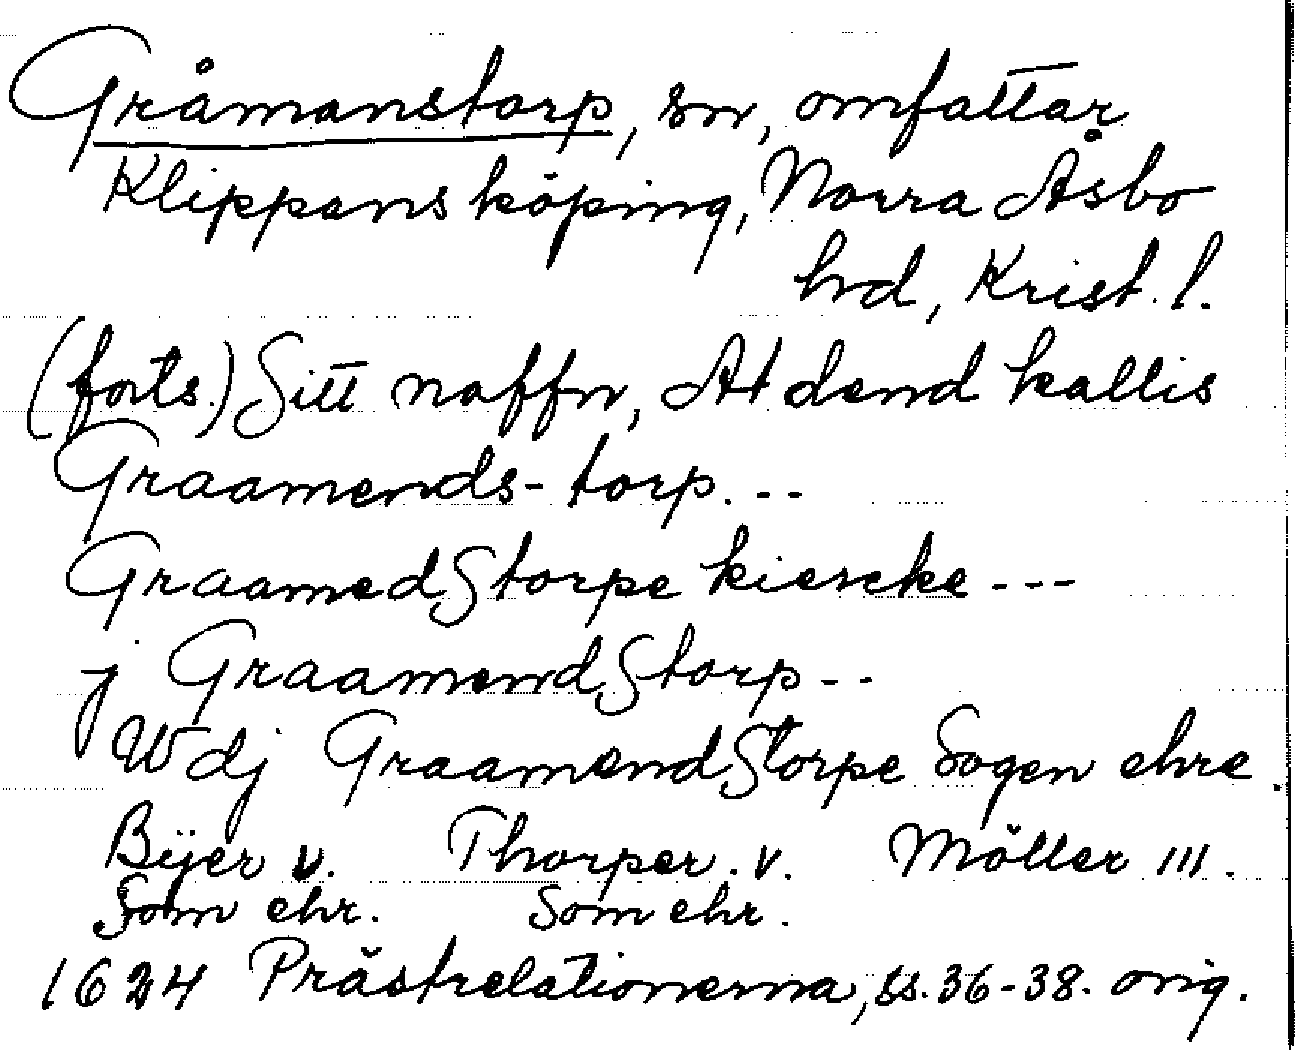 Gråmanstorp, sn, omfattar
Klippans köping, Norra Åsbo
hd, Krist. l.
(forts.) Sitt naffn, At dend kallis
Graamends-torp. --
GraamedStorpe kiercke ---
j GraamendStorp --
Wdj GraamendStorpe Sogen ehre
Bÿer v. Thorper. v. Möller III.
Som ehr. Som ehr.
1624 Prästrelationerna, ss. 36-38. orig.